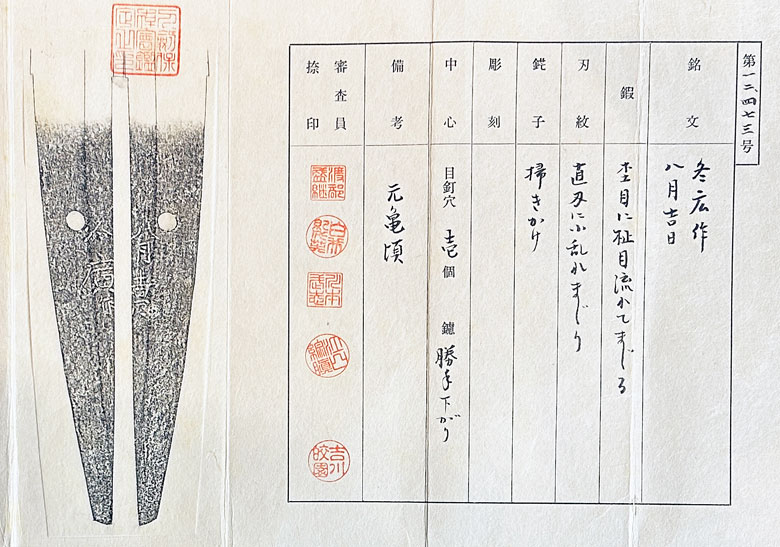 第一二、四七三号
銘文
冬広作
八月吉日
鍜
杢目に柾目流れてまじる
刃紋
直刃に小乱れまじり
鋩子
掃きかけ
彫刻
中心
目釘穴 壱個
鑢 勝手下がり
備考
元亀頃
審査員
捺印
吉川
皎園